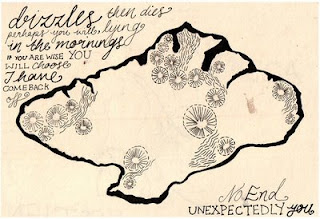 drizzles, then dies
perhaps you will, lying
in the mornings
IF YOU ARE WISE YOU
WILL choose
I have
COME BACK
off
No End
UNEXPECTEDLY you